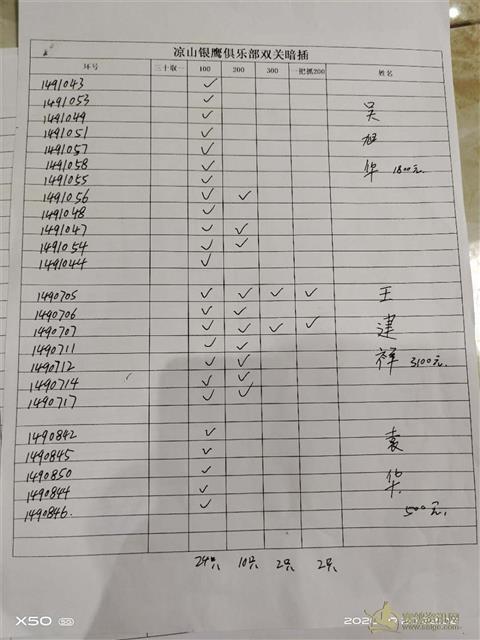 凉山银鹰俱乐部双关暗插
环号 三十取一 100 200 300 一把抓200 姓名
1491043 ✓
1491053 ✓ 吴
1491049 ✓
1491051 ✓ 旭
1491057 ✓
1491058 ✓ 华 1800元.
1491055 ✓
1491056 ✓ ✓
1491048 ✓
1491047 ✓ ✓
1491054 ✓ ✓
1491044 ✓
1490705 ✓ ✓ ✓ ✓ 王
1490706 ✓ ✓
1490707 ✓ ✓ ✓ ✓ 建
1490711 ✓ ✓
1490712 ✓ ✓ 祥 3100元.
1490714 ✓ ✓
1490717 ✓ ✓
1490842 ✓ 袁
1490845 ✓
1490850 ✓ 华
1490844 ✓
1490846. ✓ 500元.
24只 10只 2只 2只
X50 5G